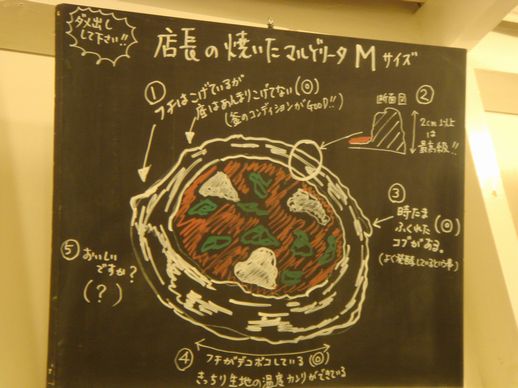 ダメ出し
して下さい!!
店長の焼いたマルゲリータ Mサイズ
①
フチはこげているが
底はあんまりこげてない(◎)
(釜のコンディションがGOOD!!)
断面図 ②
2cm以上
は
最高級!!
③
時たま (◎)
ふくれた
コブがある。
(よく発酵しているという事)
⑤ おいしい
ですか?
(?)
④ フチがデコボコしている(◎)
きっちり生地の温度カンリができている